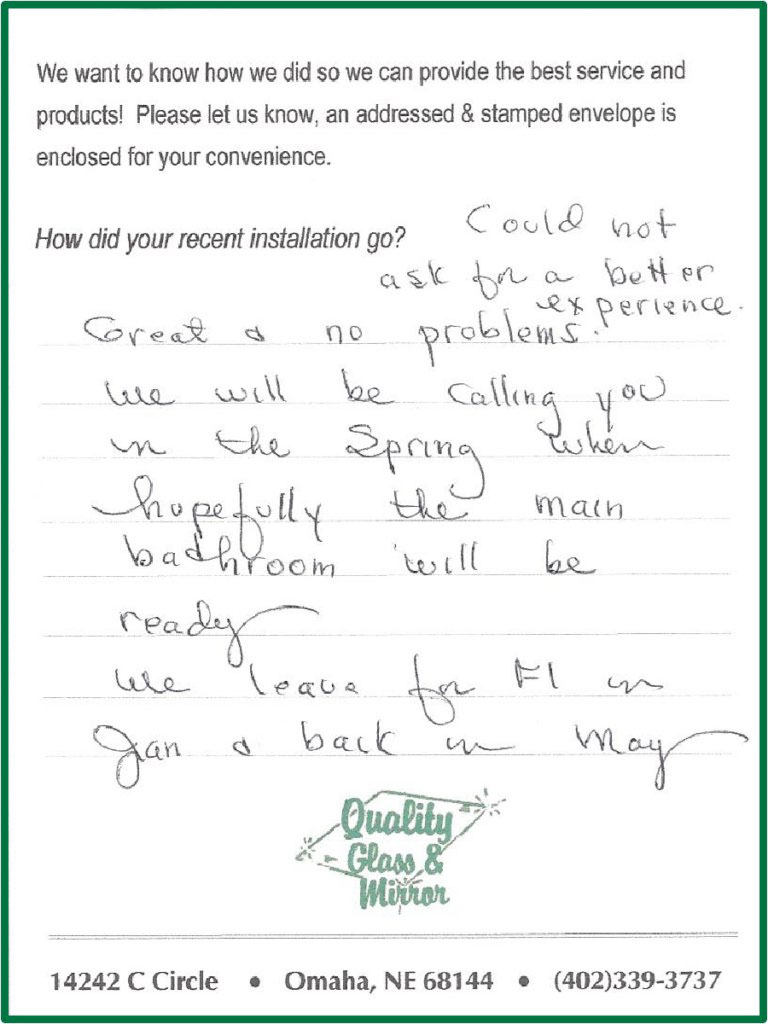 We want to know how we did so we can provide the best service and
products! Please let us know, an addressed & stamped envelope is
enclosed for your convenience.
How did your recent installation go? Could not
ask for a better
experience.
Great & no problems.
We will be calling you
in the Spring when
hopefully the main
bathroom will be
ready
We leave for Fl in
Jan & back in May
Quality
Glass &
Mirror
14242 C Circle • Omaha, NE 68144 • (402)339-3737